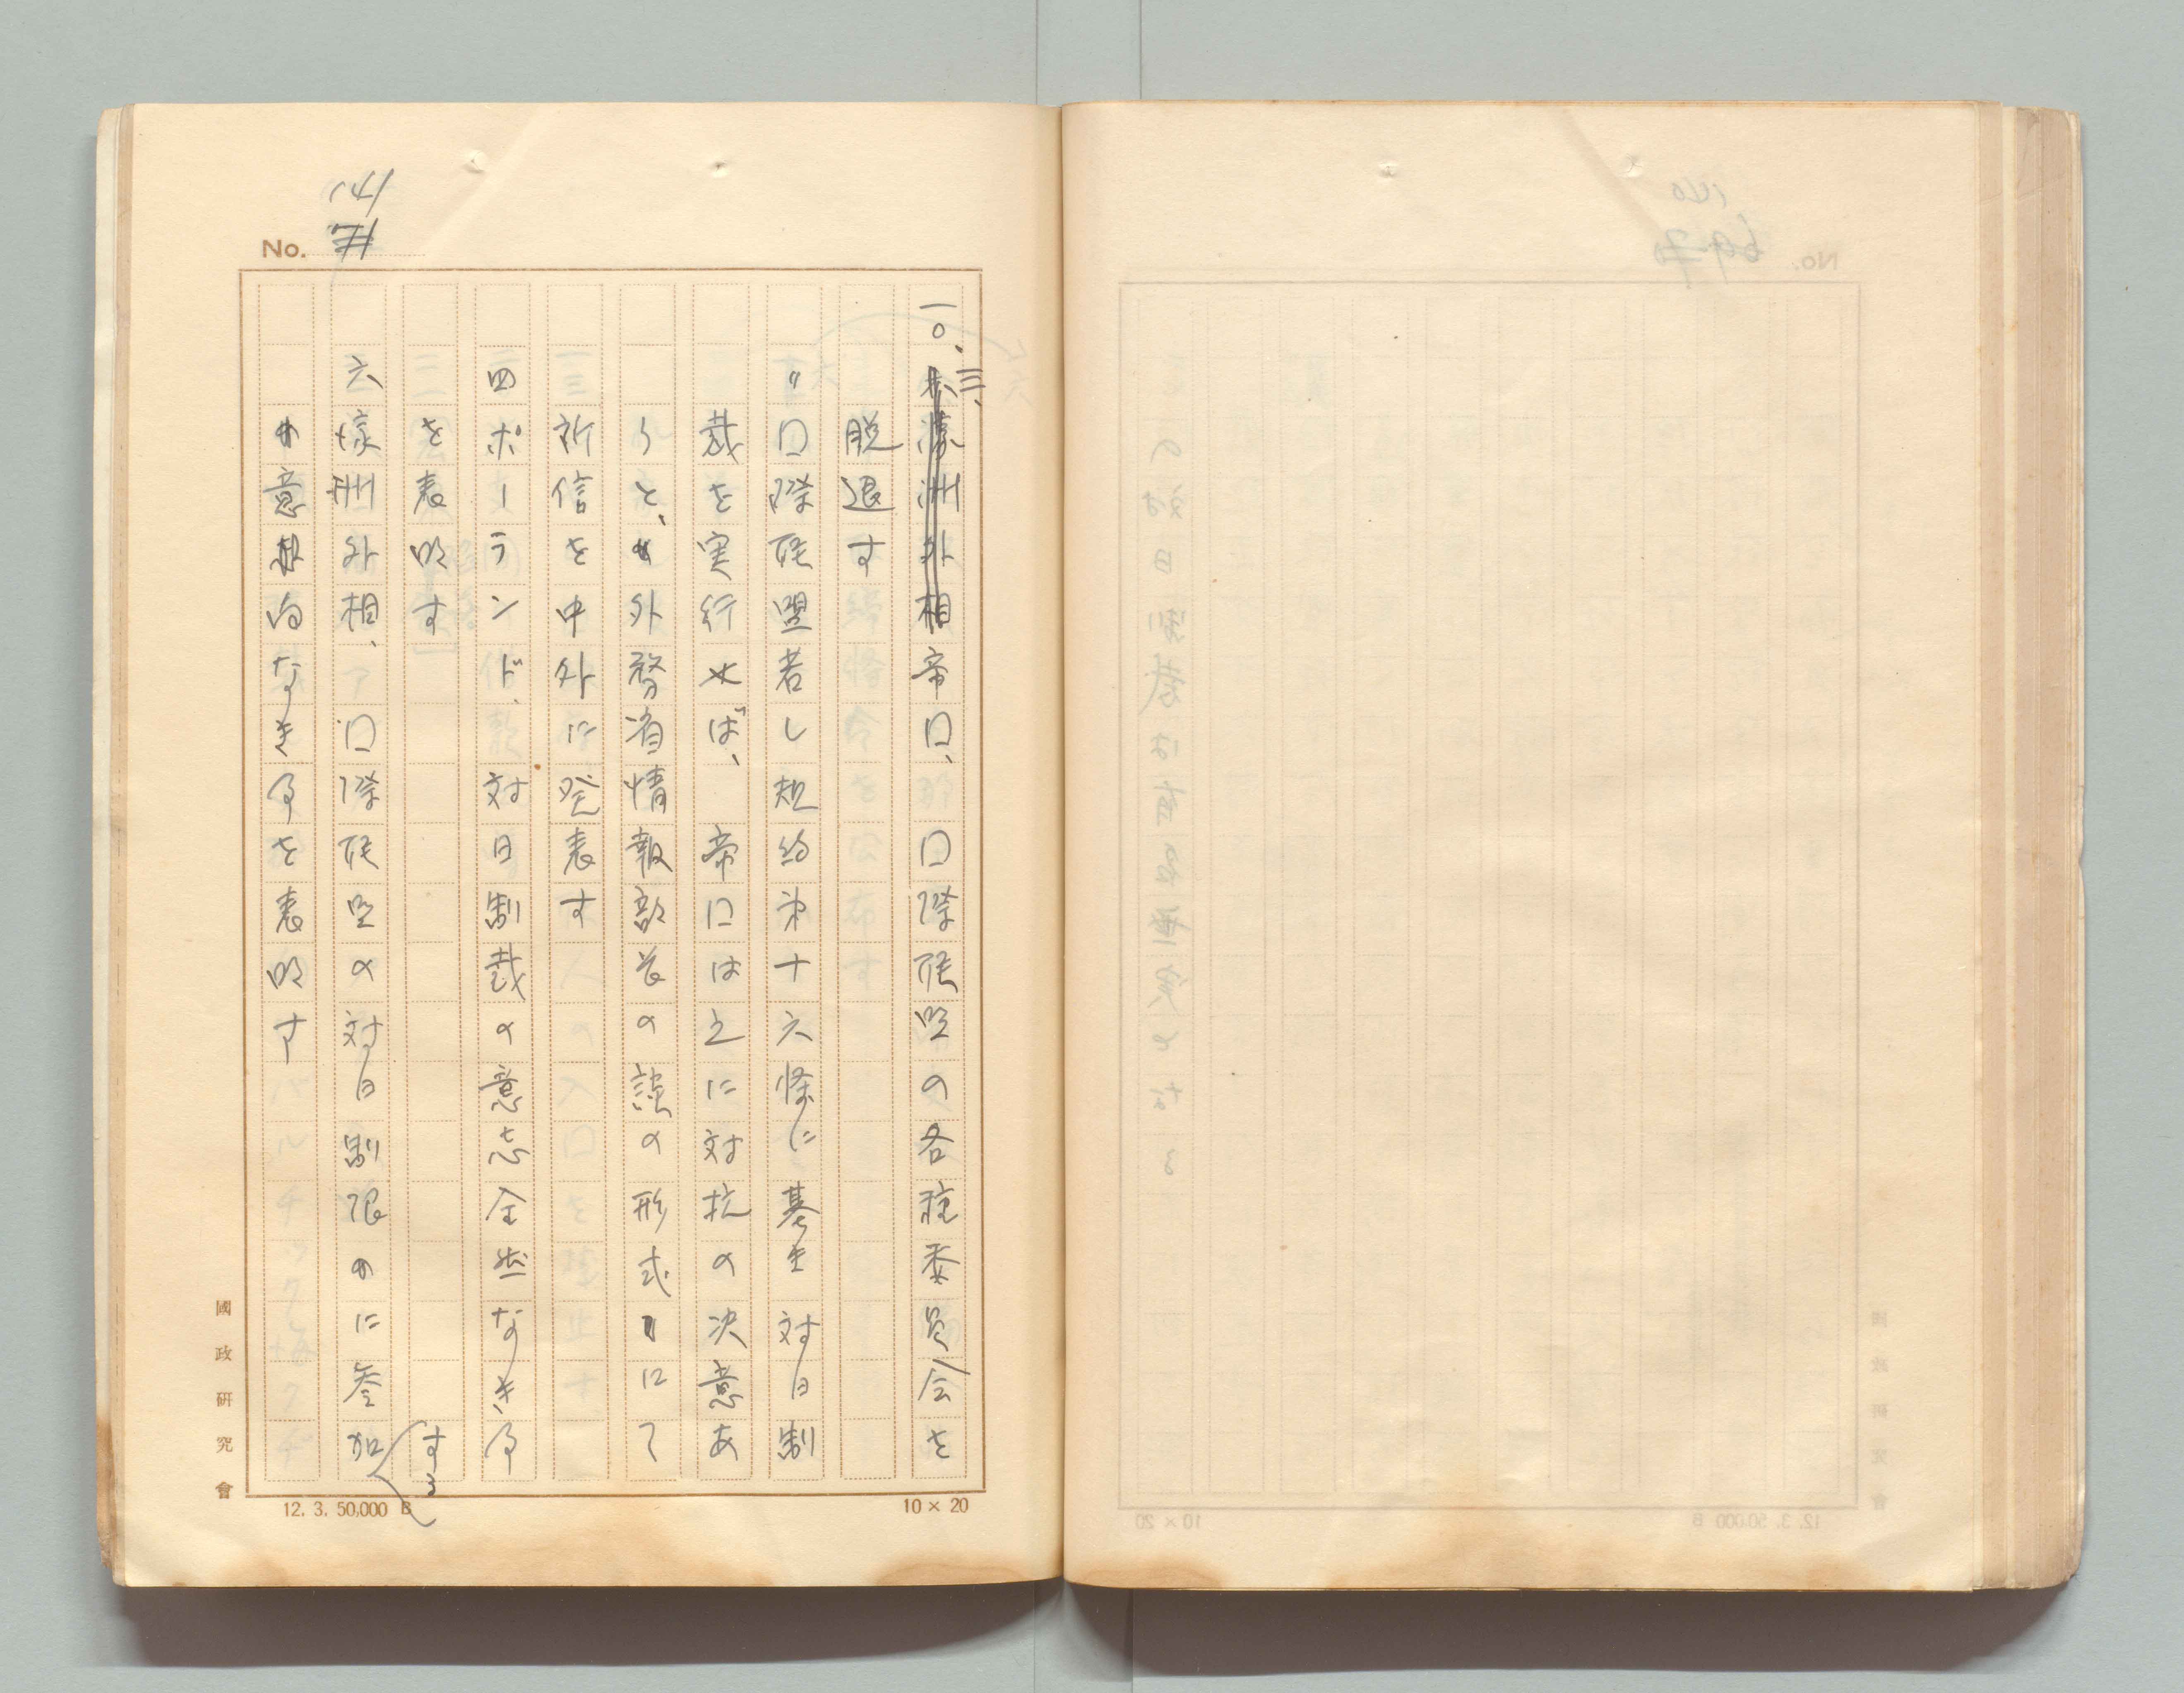 141
No. 71
一〇、三、帝口、口際聯盟の各種委員会を
脱退す
〃口際聯盟若し規約第十六條に基き対日制
裁を実行せば、帝口は之に対抗の決意あ
りと、外務省情報部長の談の形式にて
所信を中外に発表す
四ポーランド、対日制裁の意志全然なき事
を表明す
六濠洲外相、口際聯盟の対日制限に参加する
意向なき事を表明す
國政研究會
12. 3. 50,000 B
10 × 20